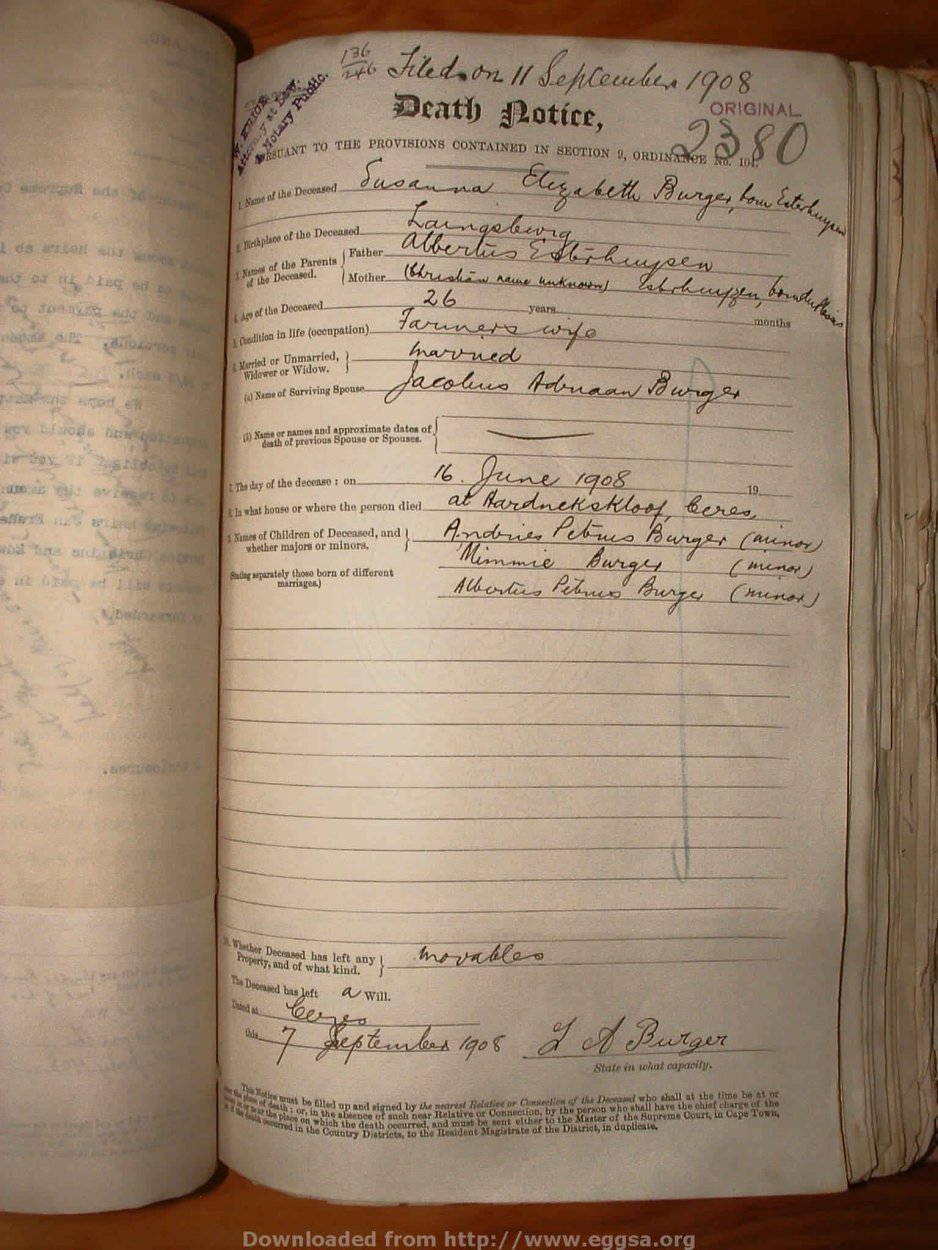 136
246
Filed on 11 September 1908
Attorney at Law.
Notary Public.
Death Notice,
ORIGINAL
2380
PURSUANT TO THE PROVISIONS CONTAINED IN SECTION 9, ORDINANCE No. 104.
1. Name of the Deceased Susanna Elizabeth Burger, born Esterhuysen
2. Birthplace of the Deceased Laingsburg
3. Names of the Parents of the Deceased. Father Albertus Esterhuysen
Mother (Christian name unknown) Esterhuyzen, born du Plessis
4. Age of the Deceased 26 years months
5. Condition in life (occupation) Farmers wife
6. Married or Unmarried, Widower or Widow. Married
(a) Name of Surviving Spouse Jacobus Adriaan Burger
(b) Name or names and approximate dates of death of previous Spouse or Spouses.
7. The day of the decease: on 16 June 1908 19
8. In what house or where the person died at Hardnekskloof Ceres
9. Names of Children of Deceased, and whether majors or minors. Andries Petrus Burger (minor)
Mimmie Burger (minor)
(Stating separately those born of different marriages.) Albertus Petrus Burger (minor)
10. Whether Deceased has left any Property, and of what kind. Movables
The Deceased has left a Will.
Dated at Ceres
this 7 September 1908 J A Burger
State in what capacity.
This Notice must be filled up and signed by the nearest Relative or Connection of the Deceased who shall at the time be at or
near the place of death; or, in the absence of such near Relative or Connection, by the person who shall have the chief charge of the
house in or near the place on which the death occurred, and must be sent either to the Master of the Supreme Court, in Cape Town,
or if the death occurred in the Country Districts, to the Resident Magistrate of the District, in duplicate.
Downloaded from http://www.eggsa.org